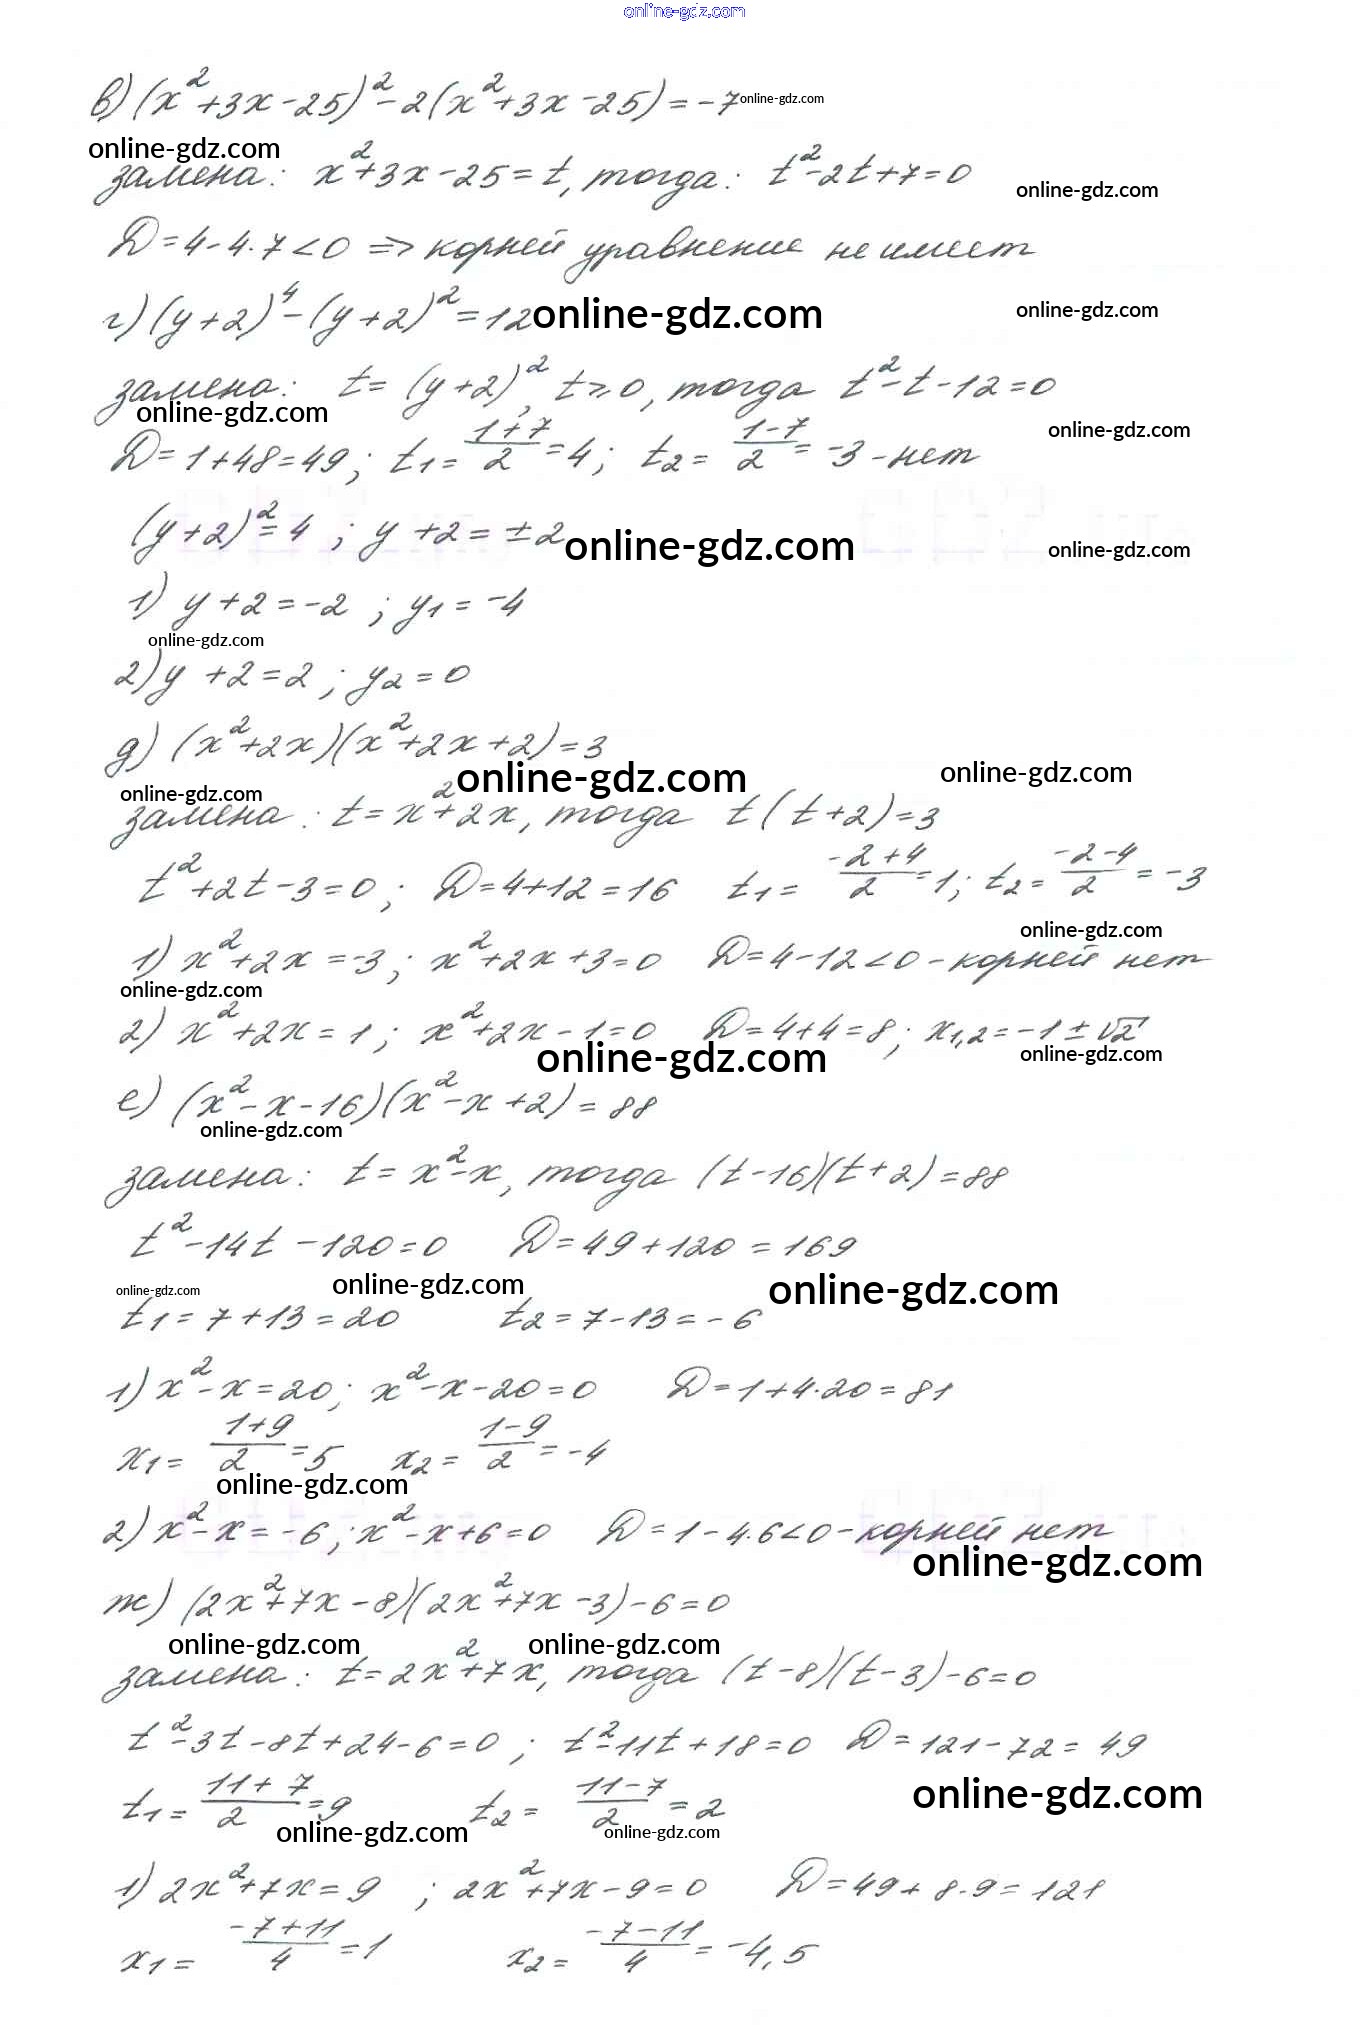 online-gdz.com
в) (x²+3x-25)²-2(x²+3x-25)=-7 online-gdz.com
online-gdz.com
замена: x²+3x-25=t, тогда: t²-2t+7=0
online-gdz.com
D=4-4·7<0 => корней уравнение не имеет
г) (y+2)⁴-(y+2)²=12 online-gdz.com
online-gdz.com
замена: t=(y+2)², t≥0, тогда t²-t-12=0
online-gdz.com
online-gdz.com
D=1+48=49; t₁=(1+7)/2=4; t₂=(1-7)/2=-3-нет
(y+2)²=4; y+2=±2 online-gdz.com
online-gdz.com
1) y+2=-2; y₁=-4
online-gdz.com
2) y+2=2; y₂=0
д) (x²+2x)(x²+2x+2)=3
online-gdz.com
online-gdz.com
online-gdz.com
замена: t=x²+2x, тогда t(t+2)=3
t²+2t-3=0; D=4+12=16 t₁=(-2+4)/2=1; t₂=(-2-4)/2=-3
online-gdz.com
1) x²+2x=-3; x²+2x+3=0 D=4-12<0-корней нет
online-gdz.com
2) x²+2x=1; x²+2x-1=0 D=4+4=8; x₁,₂=-1±√2
online-gdz.com
online-gdz.com
е) (x²-x-16)(x²-x+2)=88
online-gdz.com
замена: t=x²-x, тогда (t-16)(t+2)=88
t²-14t-120=0 D=49+120=169
online-gdz.com
online-gdz.com
online-gdz.com
t₁=7+13=20 t₂=7-13=-6
1) x²-x=20; x²-x-20=0 D=1+4·20=81
x₁=(1+9)/2=5 x₂=(1-9)/2=-4
online-gdz.com
2) x²-x=-6; x²-x+6=0 D=1-4·6<0-корней нет
online-gdz.com
ж) (2x²+7x-8)(2x²+7x-3)-6=0
online-gdz.com
online-gdz.com
замена: t=2x²+7x, тогда (t-8)(t-3)-6=0
t²-3t-8t+24-6=0; t²-11t+18=0 D=121-72=49
t₁=(11+7)/2=9 t₂=(11-7)/2=2
online-gdz.com
online-gdz.com
online-gdz.com
1) 2x²+7x=9; 2x²+7x-9=0 D=49+8·9=121
x₁=(-7+11)/4=1 x₂=(-7-11)/4=-4,5